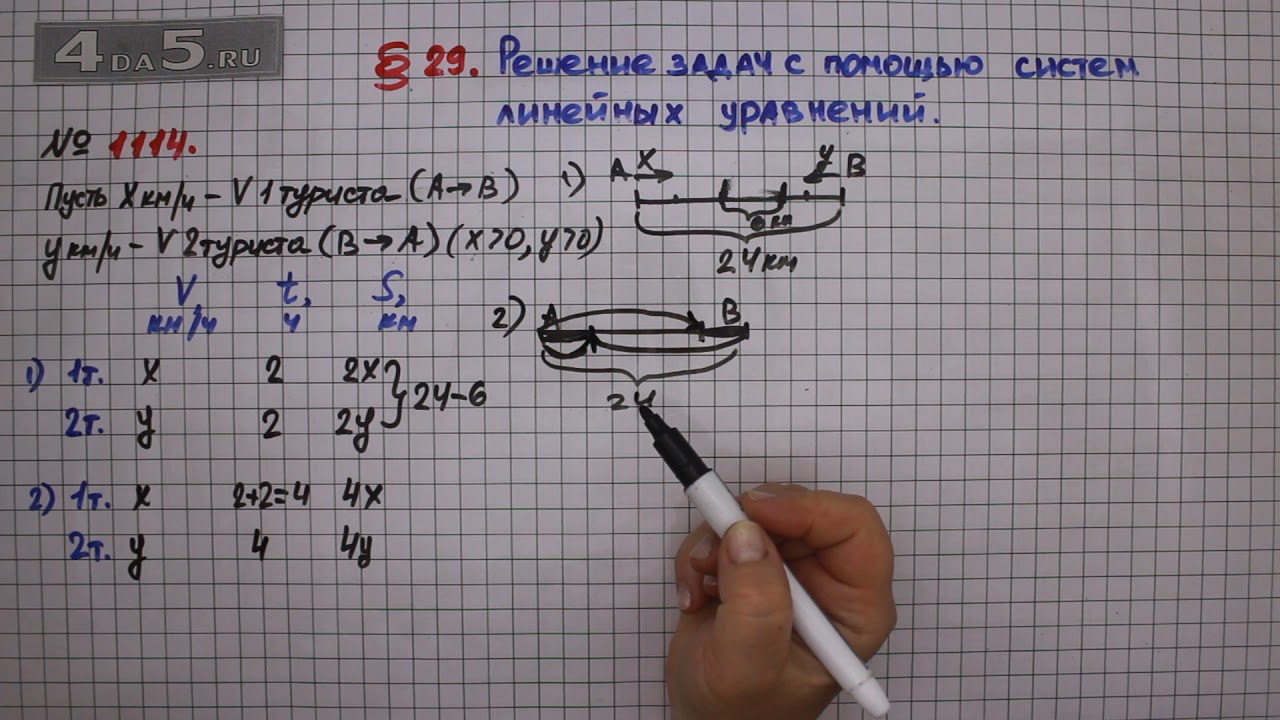 4DA5.RU
§ 29. Решение задач с помощью систем
линейных уравнений.
№ 1114.
Пусть X км/ч – V 1 туриста (A→B)
y км/ч – V 2 туриста (B→A) (x>0, y>0)
1) A X y B
км
24 км
V, км/ч t, ч S, км
1) 1т. x 2 2x
2т. y 2 2y
24-6
2) 1т. x 2+2=4 4x
2т. y 4 4y
2) A B
24